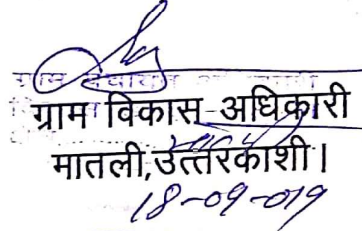 ग्राम विकास अधिकारी
मातली,उत्तरकाशी।
18-09-019